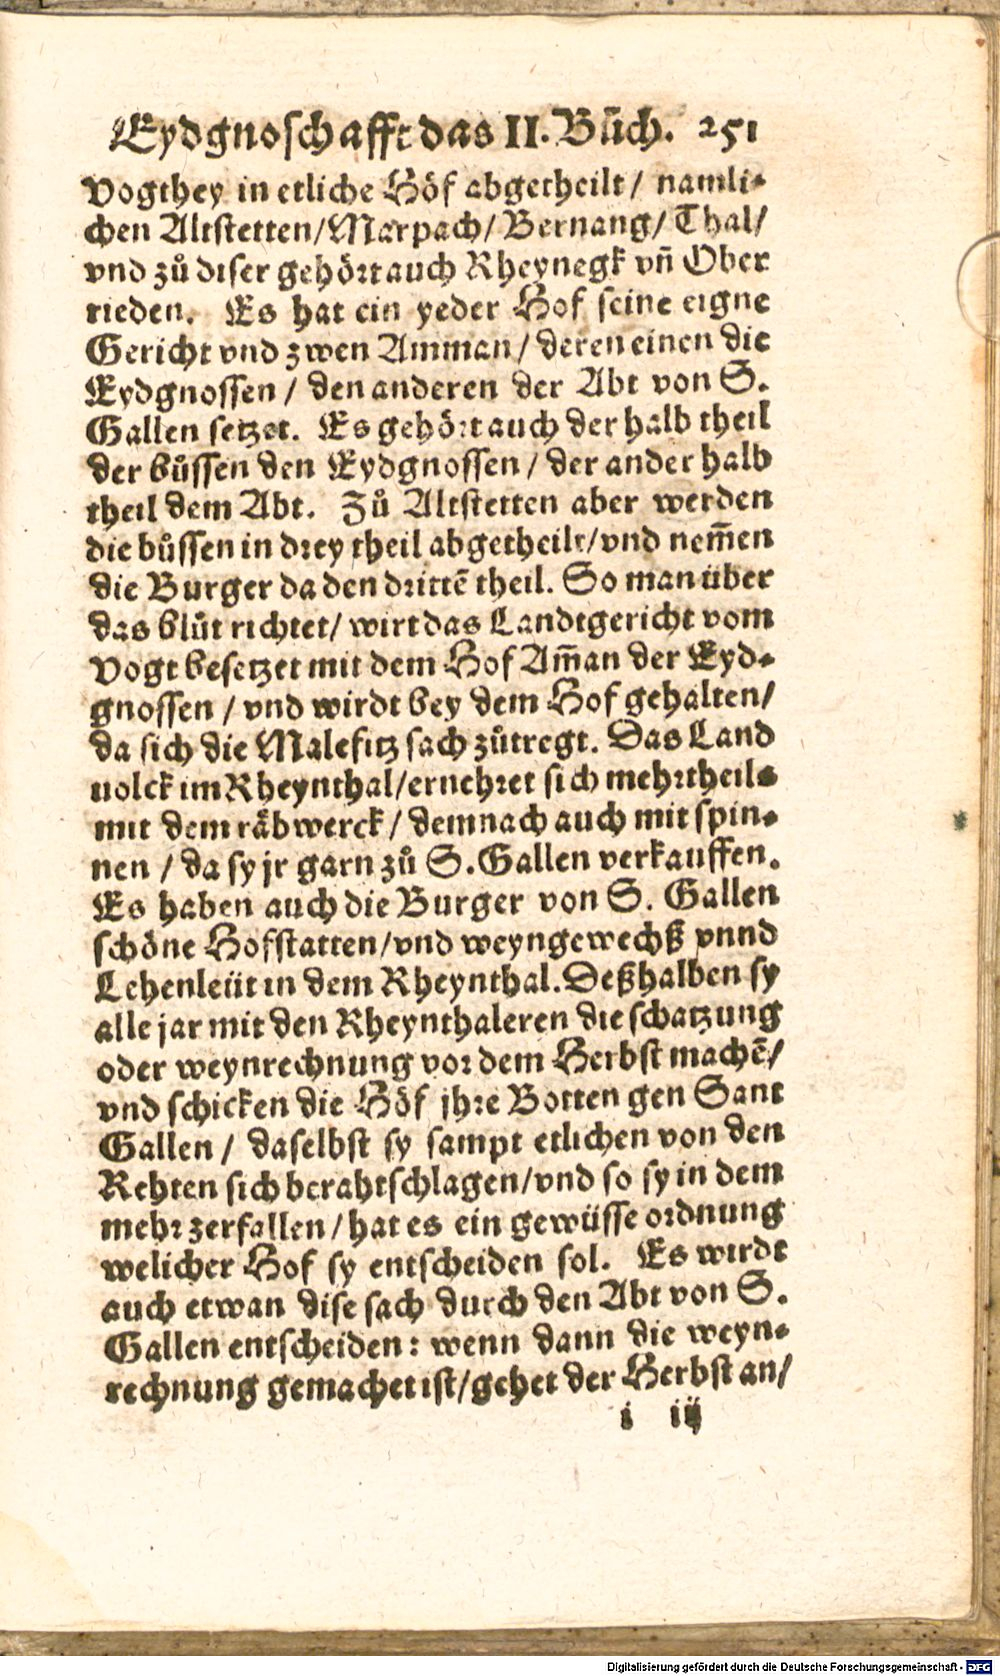 Eydgnoschafft das II. Bůch. 251
Vogthey in etliche Höf abgetheilt / namli-
chen Altstetten/Marpach/ Bernang/ Thal/
vnd zů diser gehört auch Rheynegk vñ Ober
rieden. Es hat ein yeder Hof seine eigne
Gericht vnd zwen Amman / deren einen die
Eydgnossen / den anderen der Abt von S.
Gallen setzet. Es gehört auch der halb theil
der bůssen den Eydgnossen / der ander halb
theil dem Abt. Zů Altstetten aber werden
die bůssen in drey theil abgetheilt/vnd nem̃en
die Burger da den drittẽ theil. So man über
das blůt richtet/ wirt das Landtgericht vom
Vogt besetzet mit dem Hof Am̃an der Eyd-
gnossen / vnd wirdt bey dem Hof gehalten/
da sich die Malefitz sach zůtregt. Das Land
uolck im Rheynthal/ernehret sich mehrtheils
mit dem räbwerck / demnach auch mit spin-
nen / da sy jr garn zů S. Gallen verkauffen.
Es haben auch die Burger von S. Gallen
schöne Hofstatten/vnd weyngewechß vnnd
Lehenleüt in dem Rheynthal. Deßhalben sy
alle jar mit den Rheynthaleren die schatzung
oder weynrechnung vor dem Herbst machẽ/
vnd schicken die Höf jhre Botten gen Sant
Gallen / daselbst sy sampt etlichen von den
Rehten sich berahtschlagen/vnd so sy in dem
mehr zerfallen / hat es ein gewüsse ordnung
welicher Hof sy entscheiden sol. Es wirdt
auch etwan dise sach durch den Abt von S.
Gallen entscheiden : wenn dann die weyn-
rechnung gemachet ist/gehet der Herbst an/
i iij
Digitalisierung gefördert durch die Deutsche Forschungsgemeinschaft - DFG